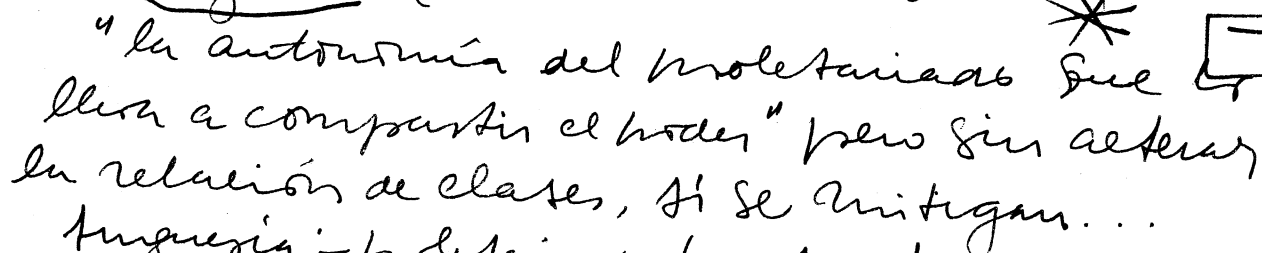 "la autonomía del proletariado que
lleva a compartir el poder" pero sin alterar
la relación de clases, sí se mitigan...